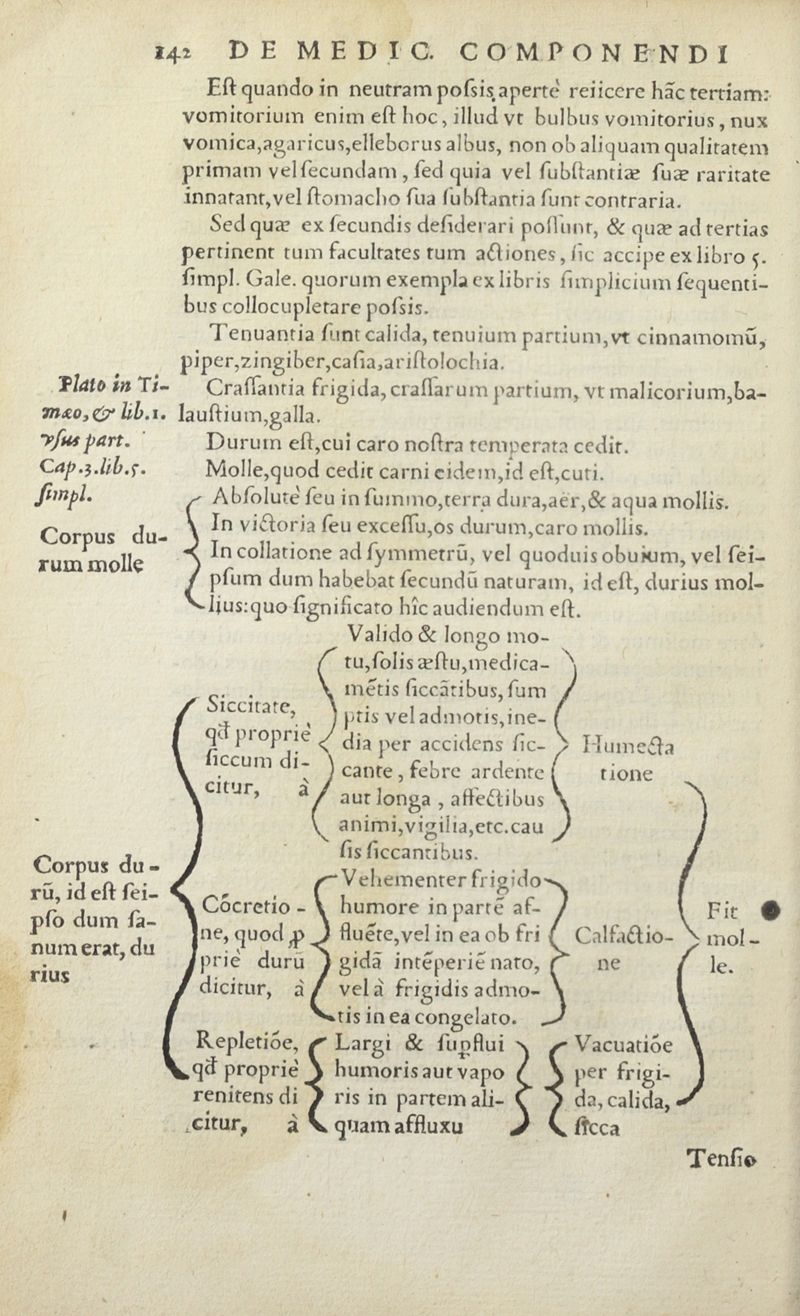 142 DE MEDIC. COMPONENDI
Eſt quando in neutram poſsis apertè reiicere hãc tertiam:
vomitorium enim eſt hoc, illud vt bulbus vomitorius, nux
vomica, agaricus, elleborus albus, non ob aliquam qualitatem
primam vel ſecundam, ſed quia vel ſubſtantiæ ſuæ raritate
innatant, vel ſtomacho ſua ſubſtantia ſunt contraria.
Sed quæ ex ſecundis deſiderari poſſunt, & quæ ad tertias
pertinent tum facultates tum actiones, ſic accipe ex libro 5.
ſimpl. Gale. quorum exempla ex libris ſimplicium ſequenti-
bus collocupletare poſsis.
Tenuantia ſunt calida, tenuium partium, vt cinnamomũ,
piper, zingiber, caſia, ariſtolochia.
Craſſantia frigida, craſſarum partium, vt malicorium, ba-
lauſtium, galla.
Plato in Ti-
mæo, & lib.1.
vſus part.
Cap.3.lib.5.
ſimpl.
Durum eſt, cui caro noſtra temperata cedit.
Molle, quod cedit carni eidem, id eſt, cuti.
Corpus du-
rum molle
Abſolutè ſeu in ſummo, terra dura, aër, & aqua mollis.
In victoria ſeu exceſſu, os durum, caro mollis.
In collatione ad ſymmetrũ, vel quoduis obuium, vel ſei-
pſum dum habebat ſecundũ naturam, id eſt, durius mol-
lius: quo ſignificato hîc audiendum eſt.
Corpus du-
rũ, id eſt ſei-
pſo dum ſa-
num erat, du
rius
Siccitate,
qđ propriè
ſiccum di-
citur, à
Valido & longo mo-
tu, ſolis æſtu, medica-
mẽtis ſiccãtibus, ſum
ptis vel admotis, ine-
dia per accidens ſic-
cante, febre ardente
aut longa, affectibus
animi, vigilia, etc. cau
ſis ſiccantibus.
Humecta
tione
Cõcretio-
ne, quod ꝓ
priè durũ
dicitur, à
Vehementer frigido
humore in partẽ af-
fluẽte, vel in ea ob fri
gidã intẽperiẽ nato,
vel à frigidis admo-
tis in ea congelato.
Calfactio-
ne
Repletiõe,
qđ propriè
renitens di
citur, à
Largi & ſupflui
humoris aut vapo
ris in partem ali-
quam affluxu
Vacuatiõe
per frigi-
da, calida,
ſicca
Fit
mol-
le.
Tenſio